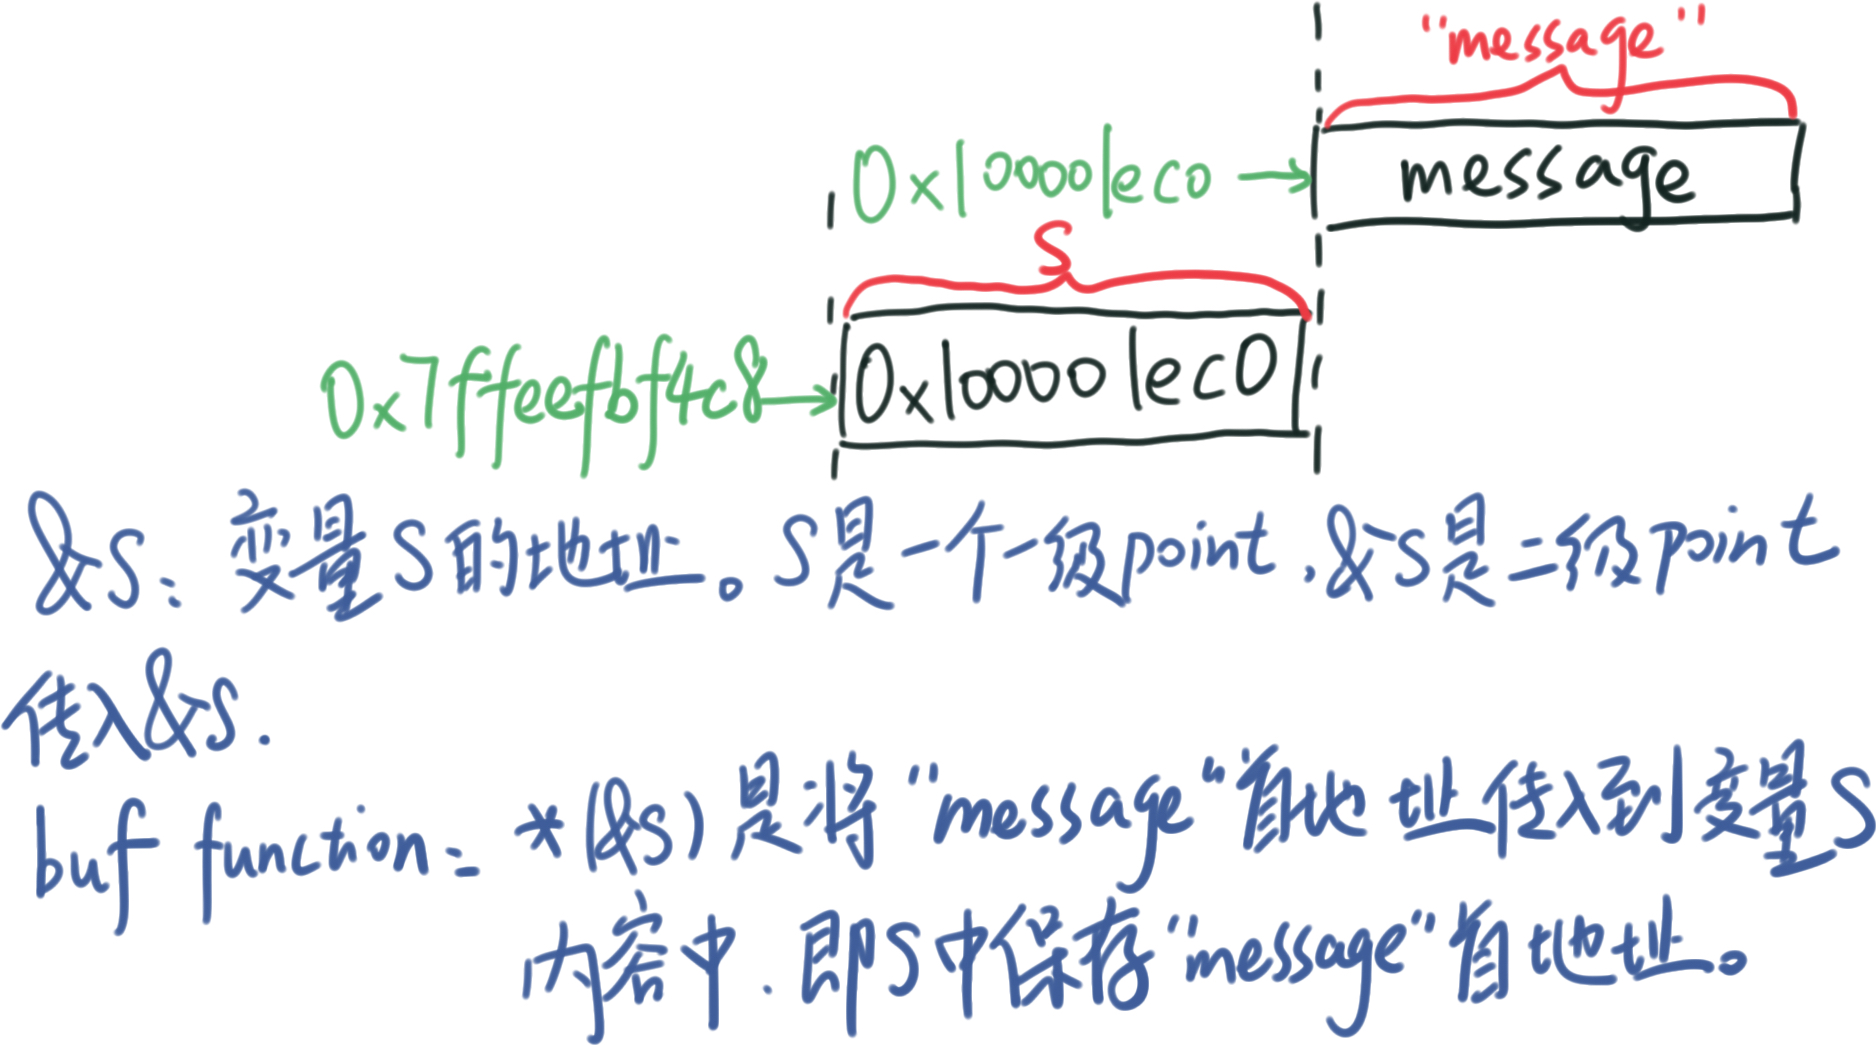 "message"
0x100001ec0 → message
S
0x7ffeefbf4c8 → 0x100001ec0
&S: 变量S的地址。S是一个一级point,&S是二级point
传入&S.
buf function: *(&S)是将"message"首地址传入到变量S
内容中.即S中保存"message"首地址。